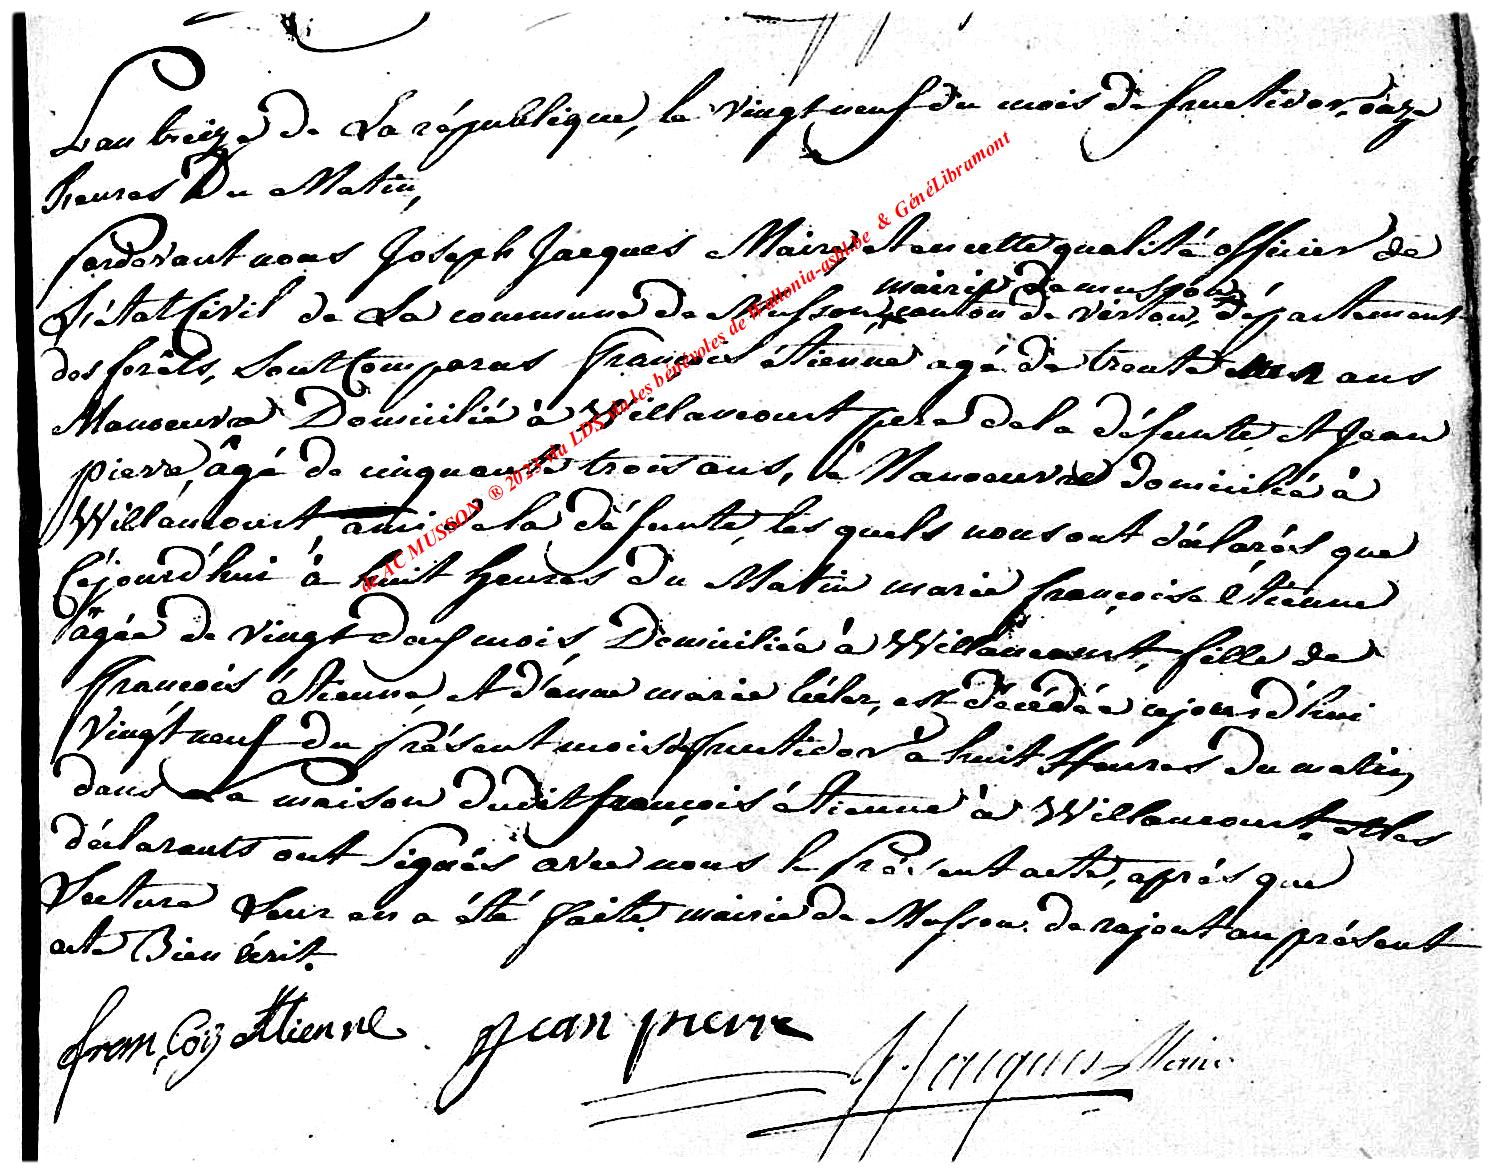 L'an treize de La république, le vingt neuf du mois de fructidor, onze
heures Du Matin,
Pardevant nous Joseph Jacques Maire et en cette qualité officier de
L'état Civil de La commune de Musson, canton de virton, département
mairie de musson
des forêts, Sont Comparus François étienne agé de trente ans
Manoeuvre Domicilié à Willancourt pere de la défunte, et Jean
pierre, âgé de cinquante trois ans, Manoeuvre domicilié à
Willancourt, ami de la défunte, les quels nous ont déclarés que
Cejourd'hui à huit heures du Matin marie françoise étienne
âgée de vingt deux mois, Domiciliée à Willancourt, fille de
François étienne, et d'anne marie, est décédée cejourd'hui
vingt neuf du présent mois de fructidor à huit Heures du matin
dans La maison dudit françois étienne à Willancourt. et les
déclarants ont signés avec nous le présent acte, aprés que
Lecture Leur en a été faite. mairie de Musson. de rajout au présent
acte Bien écrit.
françois Etienne Jean pierre J. Jacques Maire
de AC MUSSON ® 2023 via LDS via les bénévoles de Wallonia-asbl.be & GénéLibramont